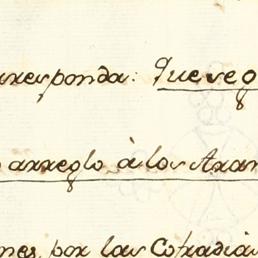 rresponda: Que se g
arreglo à los Aran
nes por las Cofradias